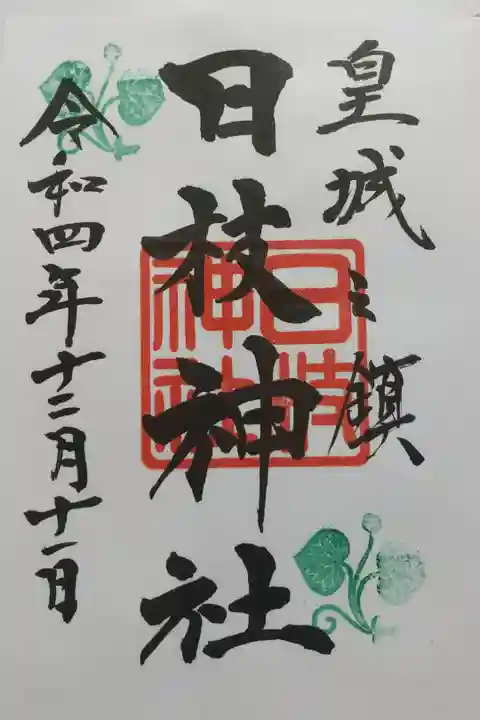 皇城之鎮
日枝神社
日枝神社
令和四年十二月十一日